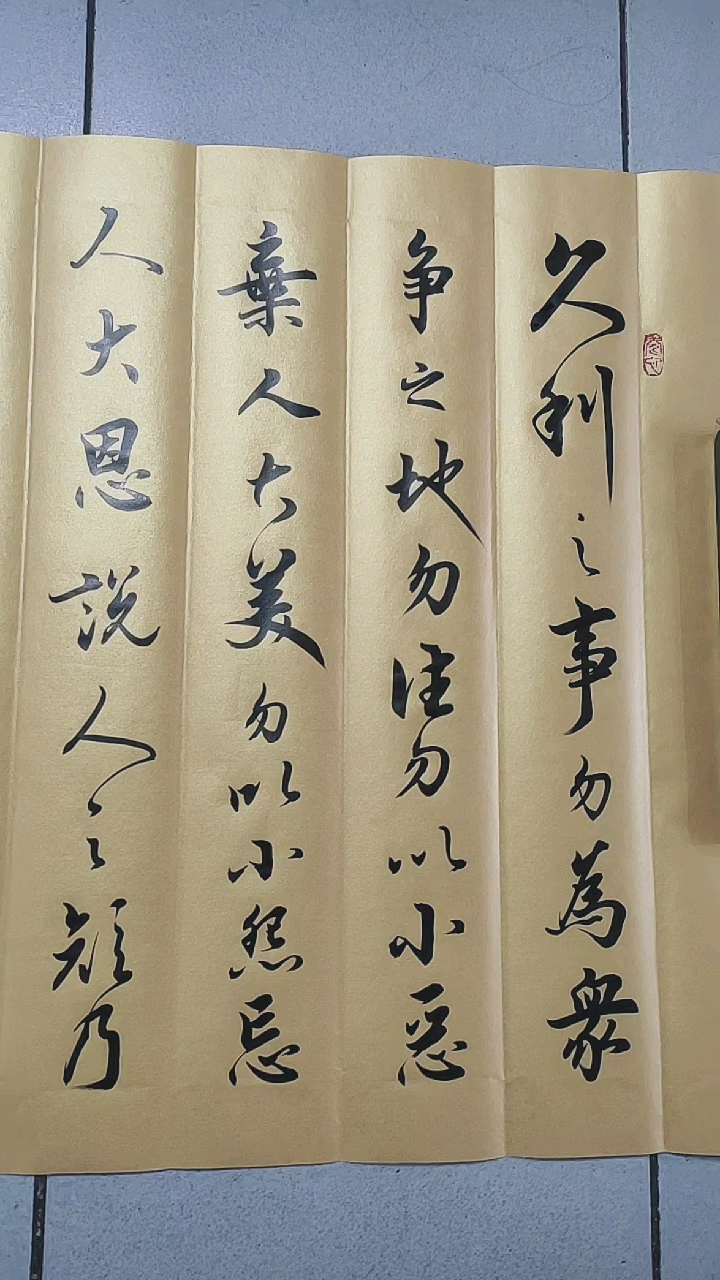 久利之事勿為衆
争之地勿往勿以小惡
棄人大美勿以小怨忘
人大恩說人之短乃